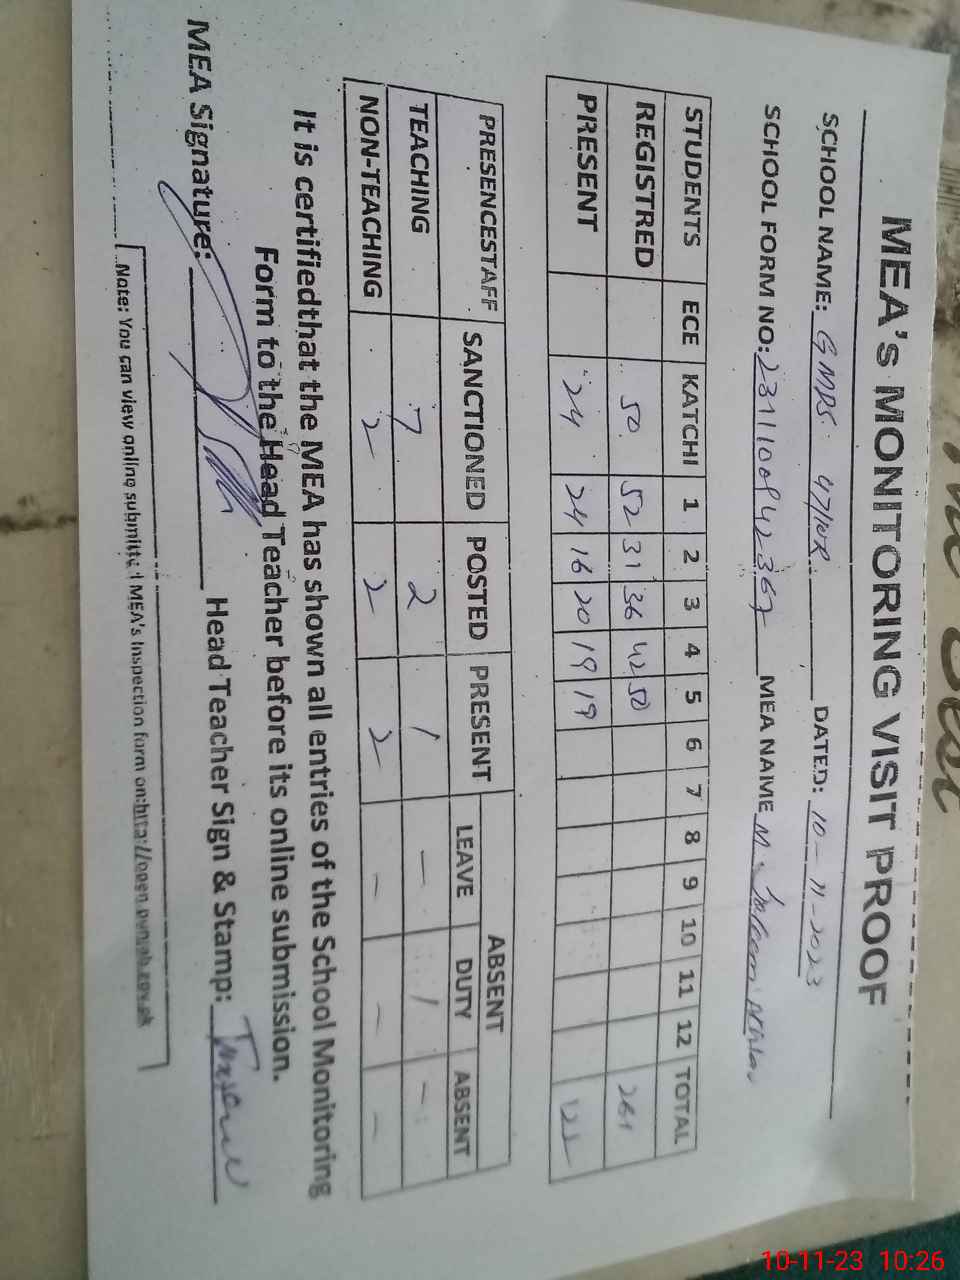 MEA's MONITORING VISIT PROOF
SCHOOL NAME: GMPS 47/10R DATED: 10-11-2023
SCHOOL FORM NO: 23110094 2367 MEA NAME M.
STUDENTS ECE KATCHI 1 2 3 4 5 6 7 8 9 10 11 12 TOTAL
REGISTRED 50 52 31 36 42 50 261
PRESENT 24 24 16 20 19 19 122
PRESENCESTAFF SANCTIONED POSTED PRESENT ABSENT
LEAVE DUTY ABSENT
TEACHING 7 2 1 - 1 -
NON-TEACHING 2 2 2 - - -
It is certifiedthat the MEA has shown all entries of the School Monitoring
Form to the Head Teacher before its online submission.
MEA Signature: Head Teacher Sign & Stamp:
Note: You can view online submitted MEA's Inspection form on:http://open.punjab.gov.pk
10-11-23 10:26